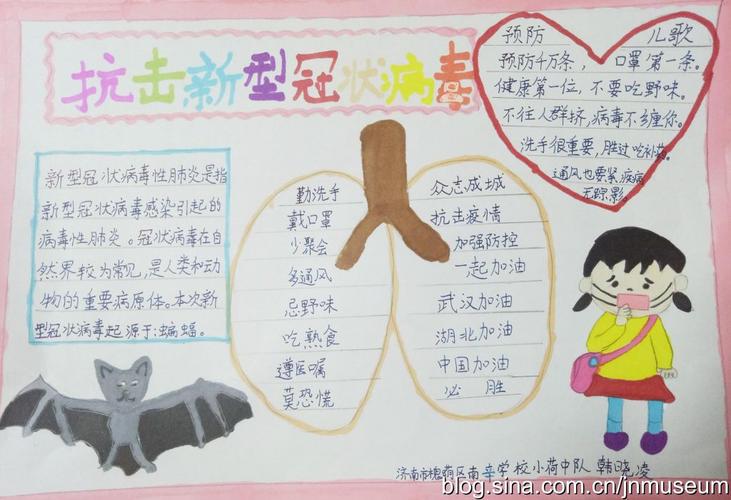 抗击新型冠状病毒
预防 儿歌
预防千万条，口罩第一条。
健康第一位，不要吃野味。
不往人群挤，病毒不缠你。
洗手很重要，胜过吃补药。
通风也要紧，疾病
无踪影。
新型冠状病毒性肺炎是指
新型冠状病毒感染引起的
病毒性肺炎。冠状病毒在自
然界较为常见，是人类和动
物的重要病原体。本次新
型冠状病毒起源于：蝙蝠。
勤洗手
戴口罩
少聚会
多通风
忌野味
吃熟食
遵医嘱
莫恐慌
众志成城
抗击疫情
加强防控
一起加油
武汉加油
湖北加油
中国加油
必胜
济南市槐荫区南辛学校小荷中队 韩晓凌
blog.sina.com.cn/jnmuseum